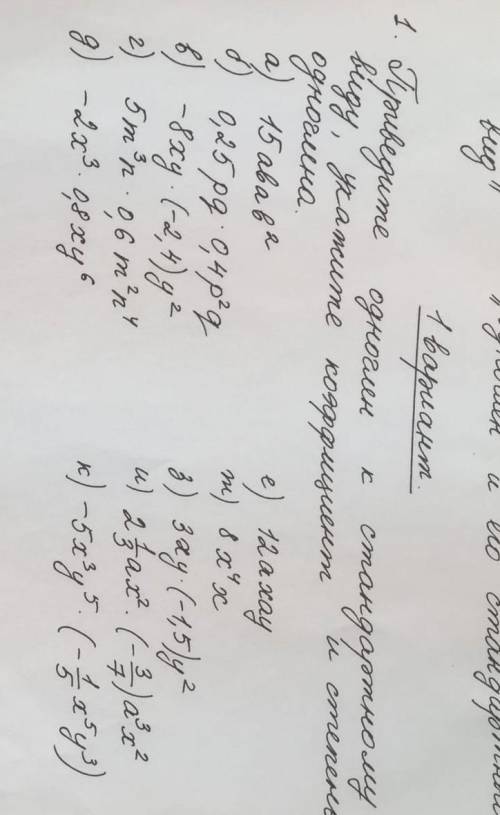 вид"
и его стандартный
1 вариант.
1. Приведите одночлен к стандартному
виду, укажите коэффициент и степень
одночлена.
а) 15авав²
б) 0,25pq · 0,4p²q
в) -8xy · (-2,4)y²
г) 5m³n · 0,6m²n⁴
д) -2x³ · 0,8xy⁶
е) 12axay
ж) 8x⁴x
з) 3ay · (-1,5)y²
и) 2⅓ax² · (-3/7)a³x²
к) -5x³y⁵ · (-1/5x⁵y³)